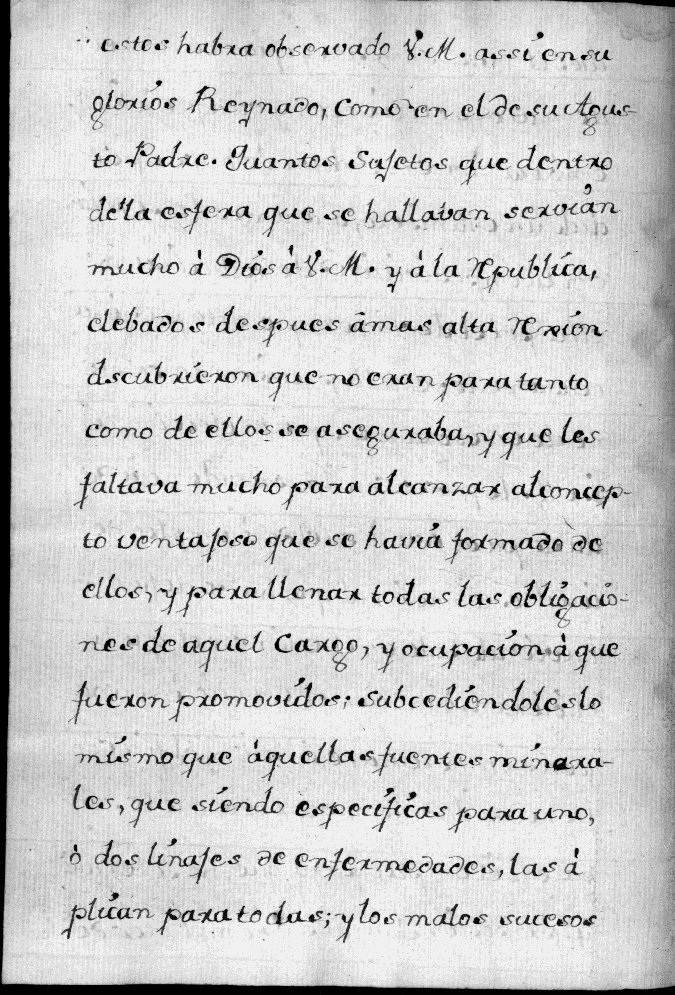 estos habra observado V. M. assi en su
glorios Reynado, como en el de su Agus-
to Padre. Quantos Sujetos que dentro
de la esfera que se hallavan, servian
mucho à Dios à V. M. y à la Republica,
elebados despues à mas alta Rexion
dscubrieron que no eran para tanto
como de ellos se aseguraba, y que les
faltava mucho para alcanzar al concep-
to ventajoso que se havia formado de
ellos, y para llenar todas las obligacio-
nes de aquel Cargo, y ocupacion à que
fueron promovidos; subcediendoles lo
mismo que àquellas fuentes minera-
les, que siendo especificas para uno,
ò dos linajes de enfermedades, las à
plican para todas; y los malos sucesos